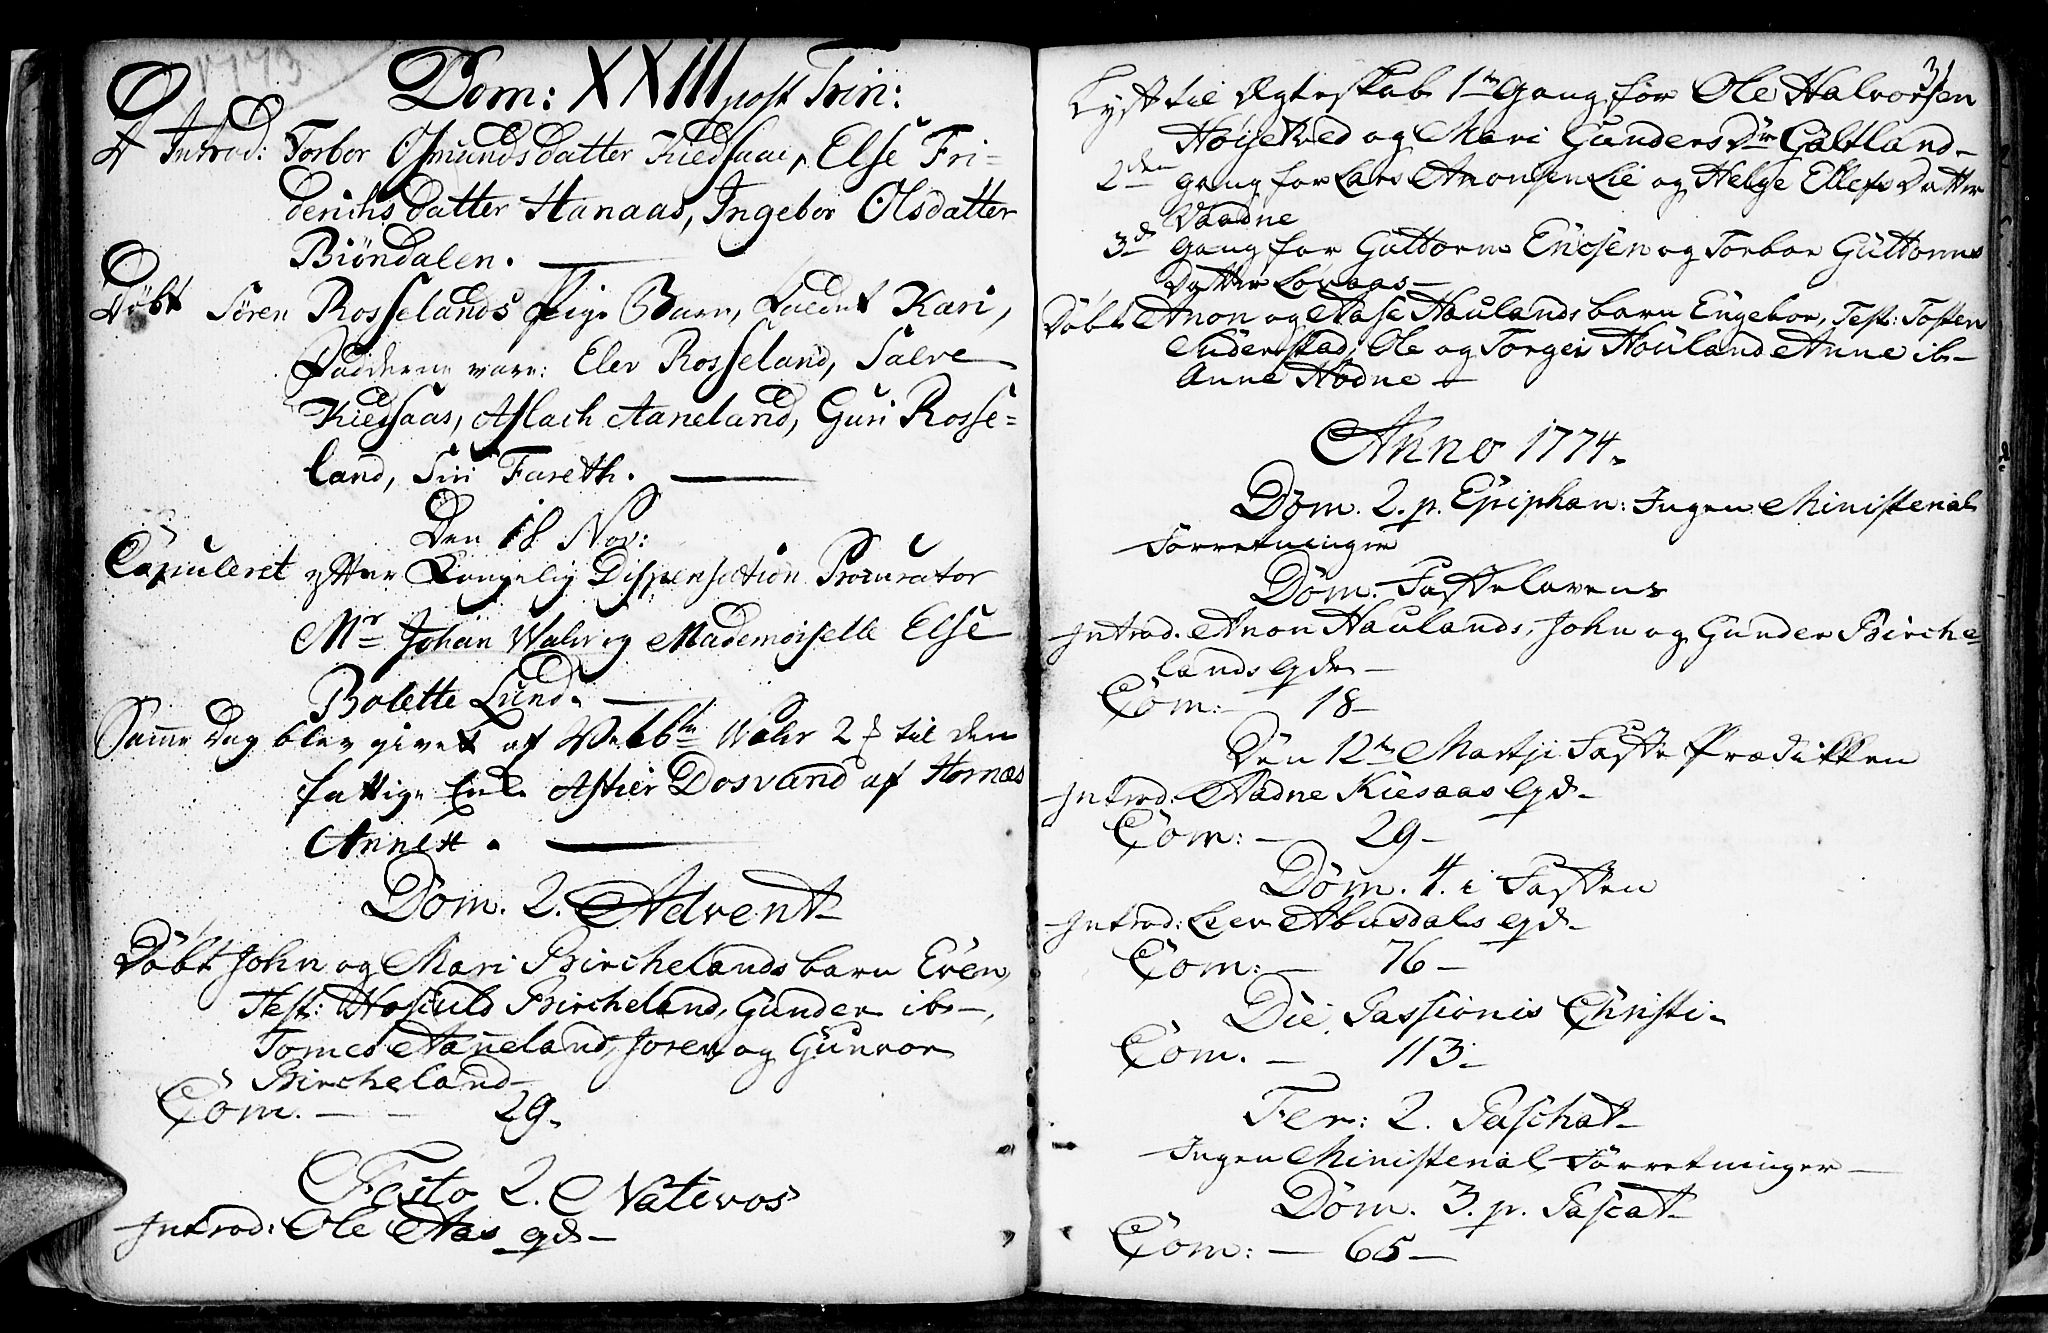 1773
Dom: XXIII post Trin:
Introd: Torbor Osmundsdatter Kiedsaas, Else Fri-
derichsdatter Hanaas, Ingebor Olsdatter
Biöndalen.
Döbt Sören Rosselands Pige Barn, kaldet Kari,
Fadderne vare: Elev Rosseland, Salve
Kiedsaas, Aslach Aaneland, Guri Rosse=
land, Siri Fareth.
Den 18 Nov:
Copuleret efter Kongelig Dispensation Procurator
Mr Johan Wahr og Mademoiselle Else
Bolette Lund.
Samme Dag blev givet af Wahr 2 til den
fattige Enke Dosvand af Hornæs
Annext.
Dom. 2. Advent
Döbt John og Mari Birchelands barn Even,
Test: Hosculd Bircheland, Gunder ib-,
Tomes Aaneland, Joren og Gunvor
Bircheland-
Com. - - 29.
Festo 2. Nativos
Introd: Ole Aas qd-
31
Lyst til Ægteskab 1te Gang for Ole Halvorsen
og Mari Gunders Dtr Galtland-
2den gang for Lars Anonsen Lie og Helge Ellefs Datter
Vaadne
3d gang for Guttorm Ericsen og Torbor Guttorms
Datter Lövaas-
Döbt Anon og Aase Haulands barn Engebor, Test: Tosten
Ole og Torger Houland Anne ib-
Anne Hodne-
Anno 1774.
Dom. 2. p. Epiphan: Ingen Ministerial
Forretninger
Dom. Fastelavens
Introd. Anon Haulands, John og Gunder Birche-
lands qdr-
Com: - 18-
Den 12te Martji Faste Prædikken
Introd: Aadne Kiesaas qd-
Com: - 29-
Dom. 4. i Fasten
Introd: Leer Abusdals qd-
Com: - 76-
Die Passionis Christi-
Com. - 113-
Fer: 2. Paschat-
Ingen Ministerial Forretninger-
Dom. 3. p. Pascat-
Com: - 65-